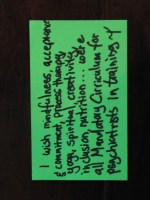 I wish mindfulness, acceptance
& commitment, process therapy,
yoga, spiritual creativity,
inclusion, nutrition... were
all Mandatory Cirriculum for
psychiatrists in training